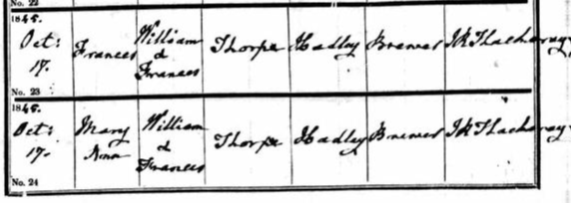 No. 22
1845.
Oct: 17. Frances William & Frances Thorpe Hadley Brewer J K Thackeray
No. 23
1845.
Oct: 17. Mary Ann William & Frances Thorpe Hadley Brewer J K Thackeray
No. 24